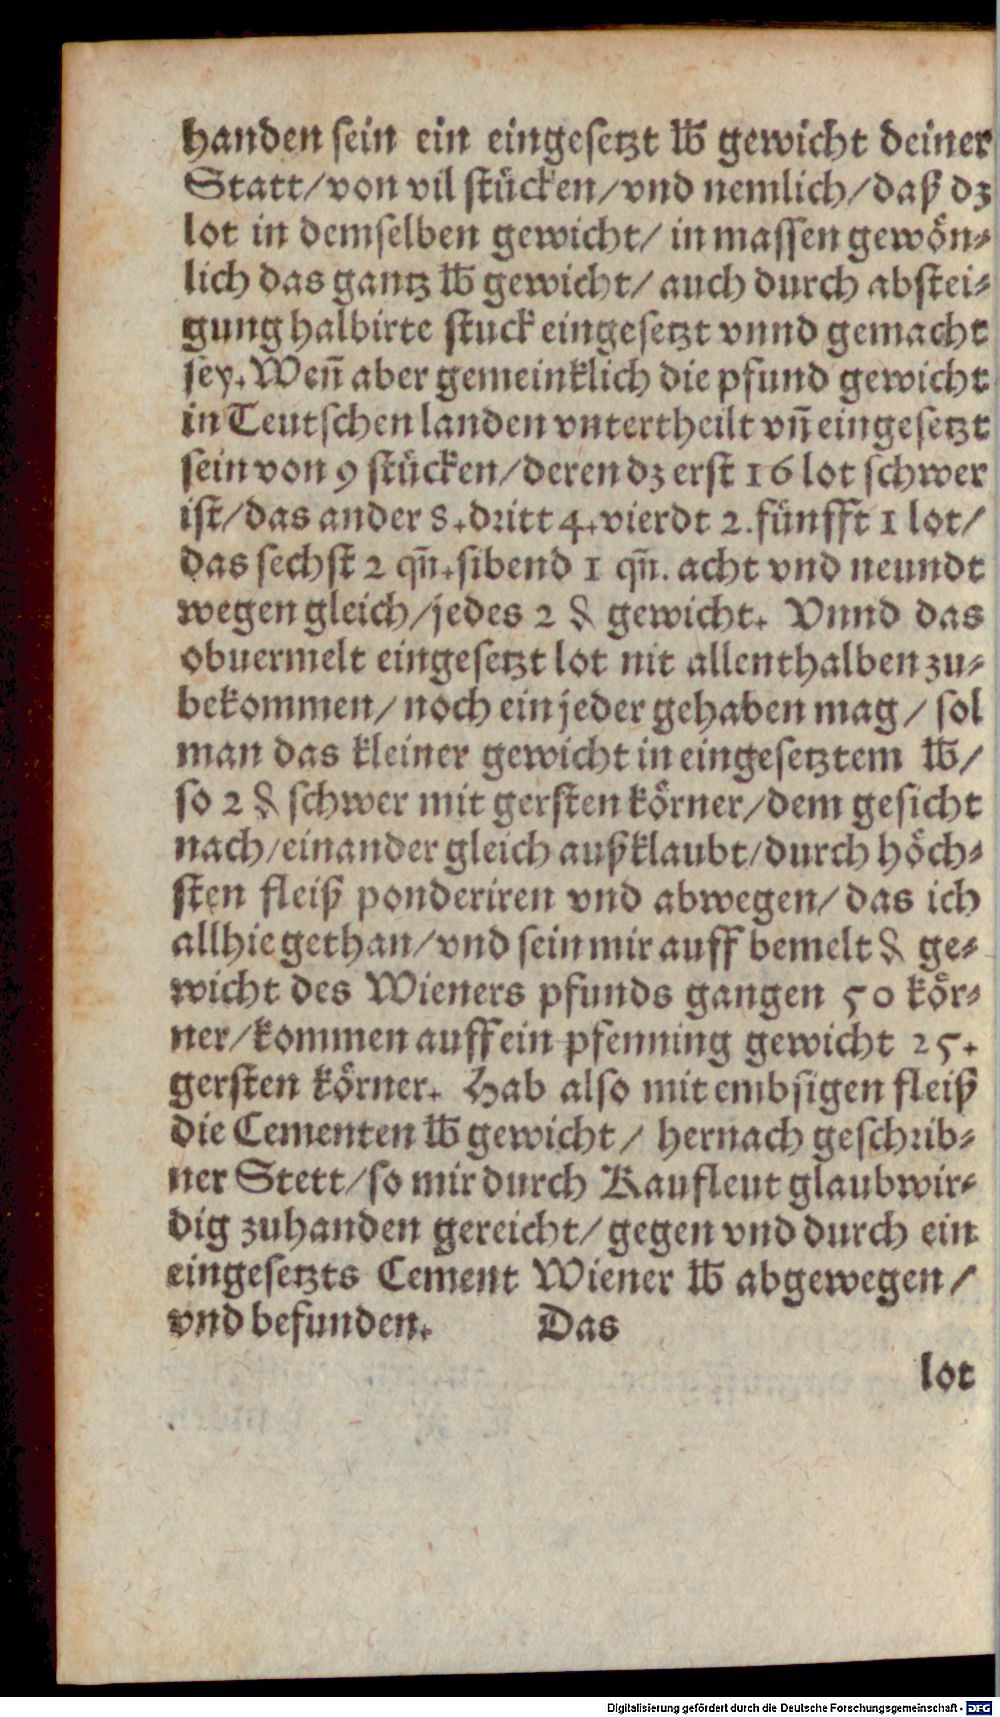 handen sein ein eingesetzt ℔ gewicht deiner
Statt/von vil stücken/vnd nemlich/daß dz
lot in demselben gewicht/ in massen gewön⸗
lich das gantz ℔ gewicht/ auch durch abstei⸗
gung halbirte stuck eingesetzt vnnd gemacht
sey. Weñ aber gemeinklich die pfund gewicht
in Teutschen landen vntertheilt vñ eingesetzt
sein von 9 stücken/deren dz erst 16 lot schwer
ist/das ander 8. dritt 4. vierdt 2. fünfft 1 lot/
das sechst 2 qñ. sibend 1 qñ. acht vnd neundt
wegen gleich/jedes 2 ₰ gewicht. Vnnd das
obuermelt eingesetzt lot nit allenthalben zu⸗
bekommen/ noch ein jeder gehaben mag/ sol
man das kleiner gewicht in eingesetztem ℔/
so 2 ₰ schwer mit gersten körner/dem gesicht
nach/einander gleich außklaubt/durch höch⸗
sten fleiß ponderiren vnd abwegen/ das ich
allhie gethan/vnd sein mir auff bemelt ₰ ge⸗
wicht des Wieners pfunds gangen 50 kör⸗
ner/kommen auff ein pfenning gewicht 25.
gersten körner. Hab also mit embsigen fleiß
die Cementen ℔ gewicht/ hernach geschrib⸗
ner Stett/so mir durch Kaufleut glaubwir⸗
dig zuhanden gereicht/ gegen vnd durch ein
eingesetzts Cement Wiener ℔ abgewegen/
vnd befunden. Das
lot
Digitalisierung gefördert durch die Deutsche Forschungsgemeinschaft - DFG